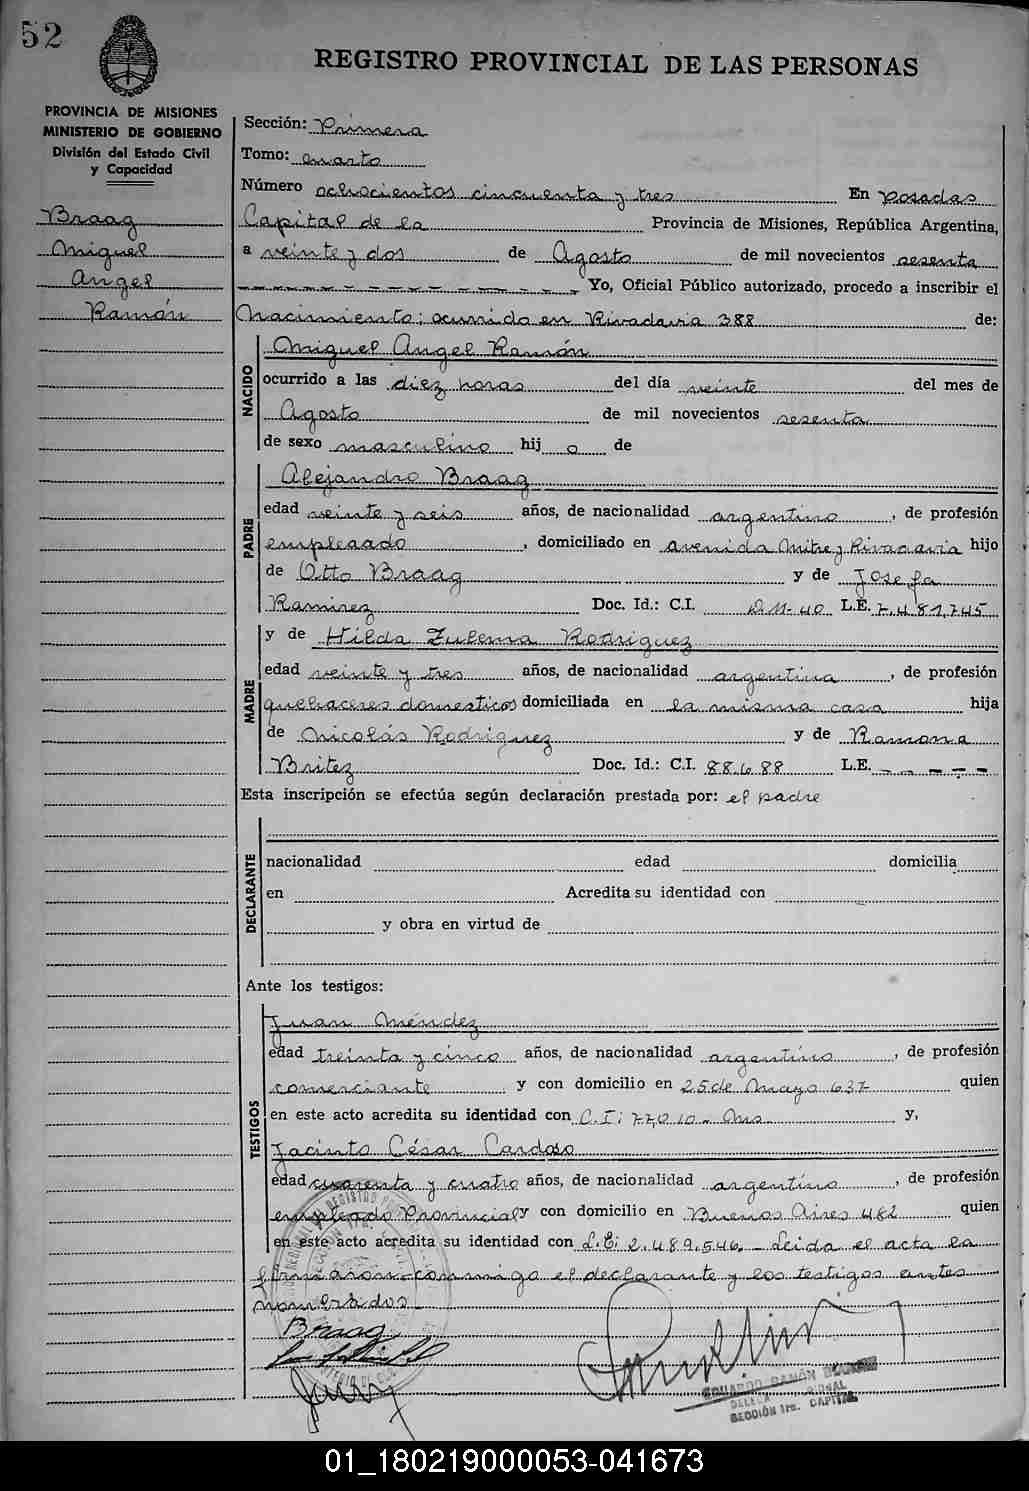 52
REGISTRO PROVINCIAL DE LAS PERSONAS
PROVINCIA DE MISIONES
MINISTERIO DE GOBIERNO
División del Estado Civil
y Capacidad
Braag
Miguel
Angel
Ramón
Sección: Primera
Tomo: cuarto
Número ochocientos cincuenta y tres En Posadas
Capital de la Provincia de Misiones, República Argentina,
a veinte y dos de Agosto de mil novecientos sesenta
Yo, Oficial Público autorizado, procedo a inscribir el
Nacimiento: ocurrido en Rivadavia 388 de:
NACIDO
Miguel Angel Ramón
ocurrido a las diez horas del día veinte del mes de
Agosto de mil novecientos sesenta
de sexo masculino hij o de
PADRE
Alejandro Braag
edad veinte y seis años, de nacionalidad argentino, de profesión
empleado, domiciliado en avenida Mitre y Rivadavia hijo
de Otto Braag y de Josefa
Ramirez Doc. Id.: C.I. D.M. 40 L.E. 7.481.745
MADRE
y de Hilda Zulema Rodriguez
edad veinte y tres años, de nacionalidad argentina, de profesión
quehaceres domesticos domiciliada en la misma casa hija
de Nicolás Rodriguez y de Ramona
Britez Doc. Id.: C.I. 88.688 L.E. - - - - -
Esta inscripción se efectúa según declaración prestada por: el padre
DECLARANTE
nacionalidad edad domicilia
en Acredita su identidad con
y obra en virtud de
Ante los testigos:
TESTIGOS
Juan Méndez
edad treinta y cinco años, de nacionalidad argentino, de profesión
comerciante y con domicilio en 25 de Mayo 637 quien
en este acto acredita su identidad con C.I: 77.010.- Mns y,
Jacinto César Cardoso
edad cuarenta y cuatro años, de nacionalidad argentino, de profesión
empleado Provincial y con domicilio en Buenos Aires 482 quien
en este acto acredita su identidad con L.E: 2.489.546.- Leida el acta la
firmaron conmigo el declarante y los testigos antes
nombrados
Braag
EDUARDO RAMÓN
SECCIÓN 1ra. CAPITAL
01_180219000053-041673